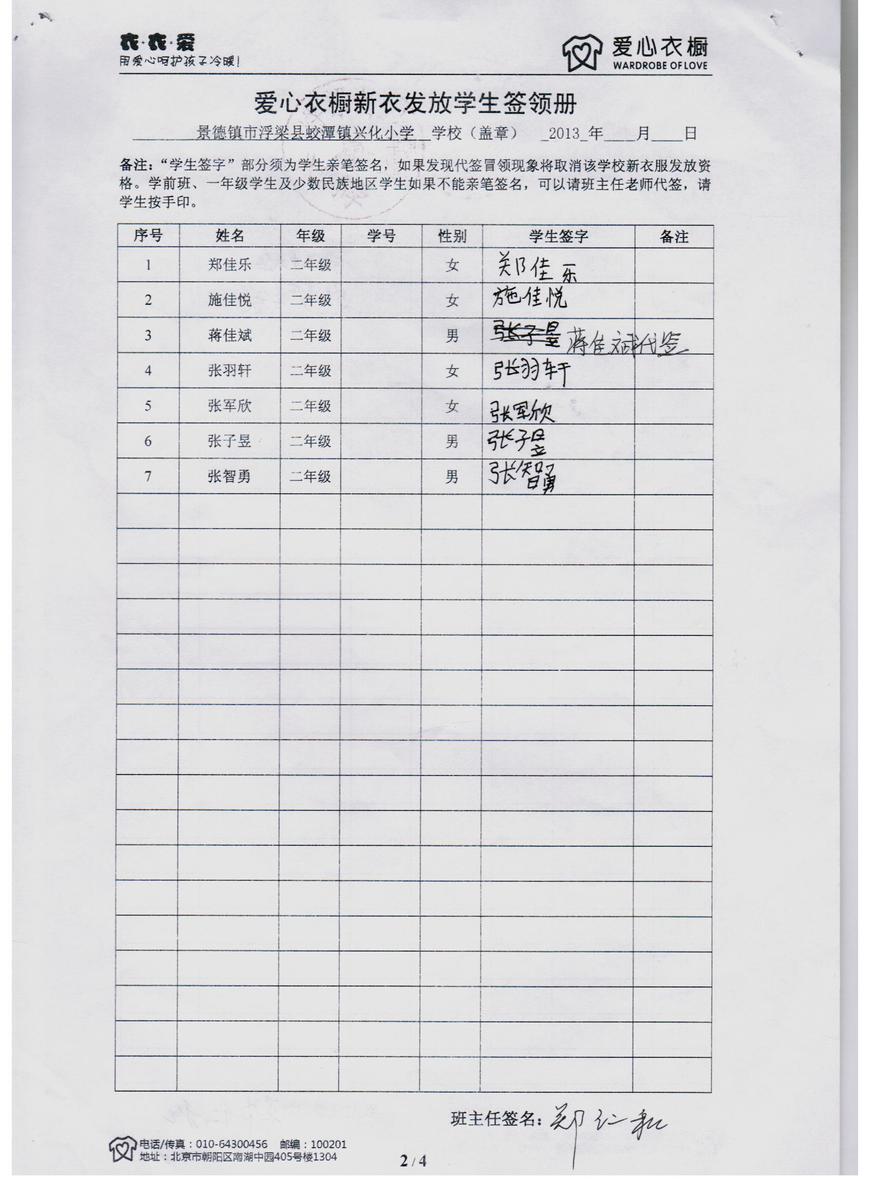 衣·衣·爱
用爱心呵护孩子冷暖!
爱心衣橱
WARDROBE OF LOVE
爱心衣橱新衣发放学生签领册
景德镇市浮梁县蛟潭镇兴化小学 学校（盖章） 2013 年____月____日
备注：“学生签字”部分须为学生亲笔签名，如果发现代签冒领现象将取消该学校新衣服发放资
格。学前班、一年级学生及少数民族地区学生如果不能亲笔签名，可以请班主任老师代签，请
学生按手印。
序号 姓名 年级 学号 性别 学生签字 备注
1 郑佳乐 二年级 女 郑佳乐
2 施佳悦 二年级 女 施佳悦
3 蒋佳斌 二年级 男 张子昱 蒋佳斌代签
4 张羽轩 二年级 女 张羽轩
5 张军欣 二年级 女 张军欣
6 张子昱 二年级 男 张子昱
7 张智勇 二年级 男 张智勇
班主任签名：郑仁和
电话/传真：010-64300456 邮编：100201
地址：北京市朝阳区南湖中园405号楼1304
2 / 4